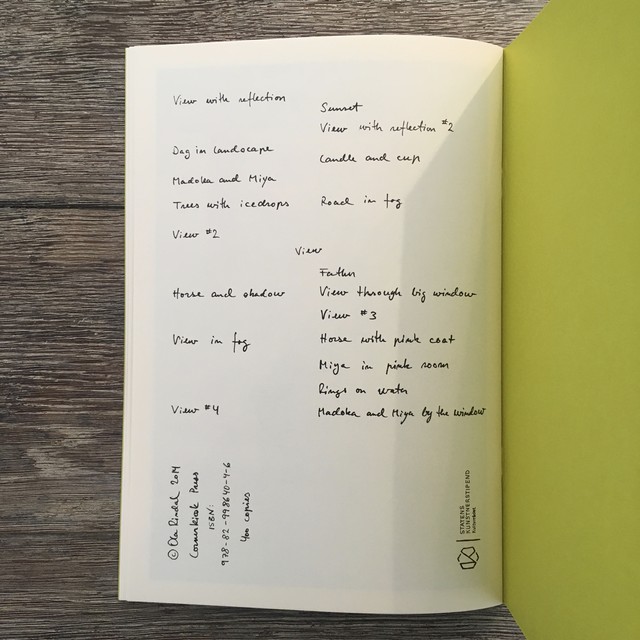 View with reflection
Sunset
View with reflection #2
Dag in landscape
Candle and cup
Madoka and Miya
Trees with icedrops
Road in fog
View #2
View
Father
Horse and shadow
View through big window
View #3
View in fog
Horse with pink coat
Miya in pink room
Rings on water
View #4
Madoka and Miya by the window
© Ola Rindal 2014
Cosmoskiosk Press
ISBN:
978-82-998640-4-6
400 copies
STATENS
KUNSTNERSTIPEND